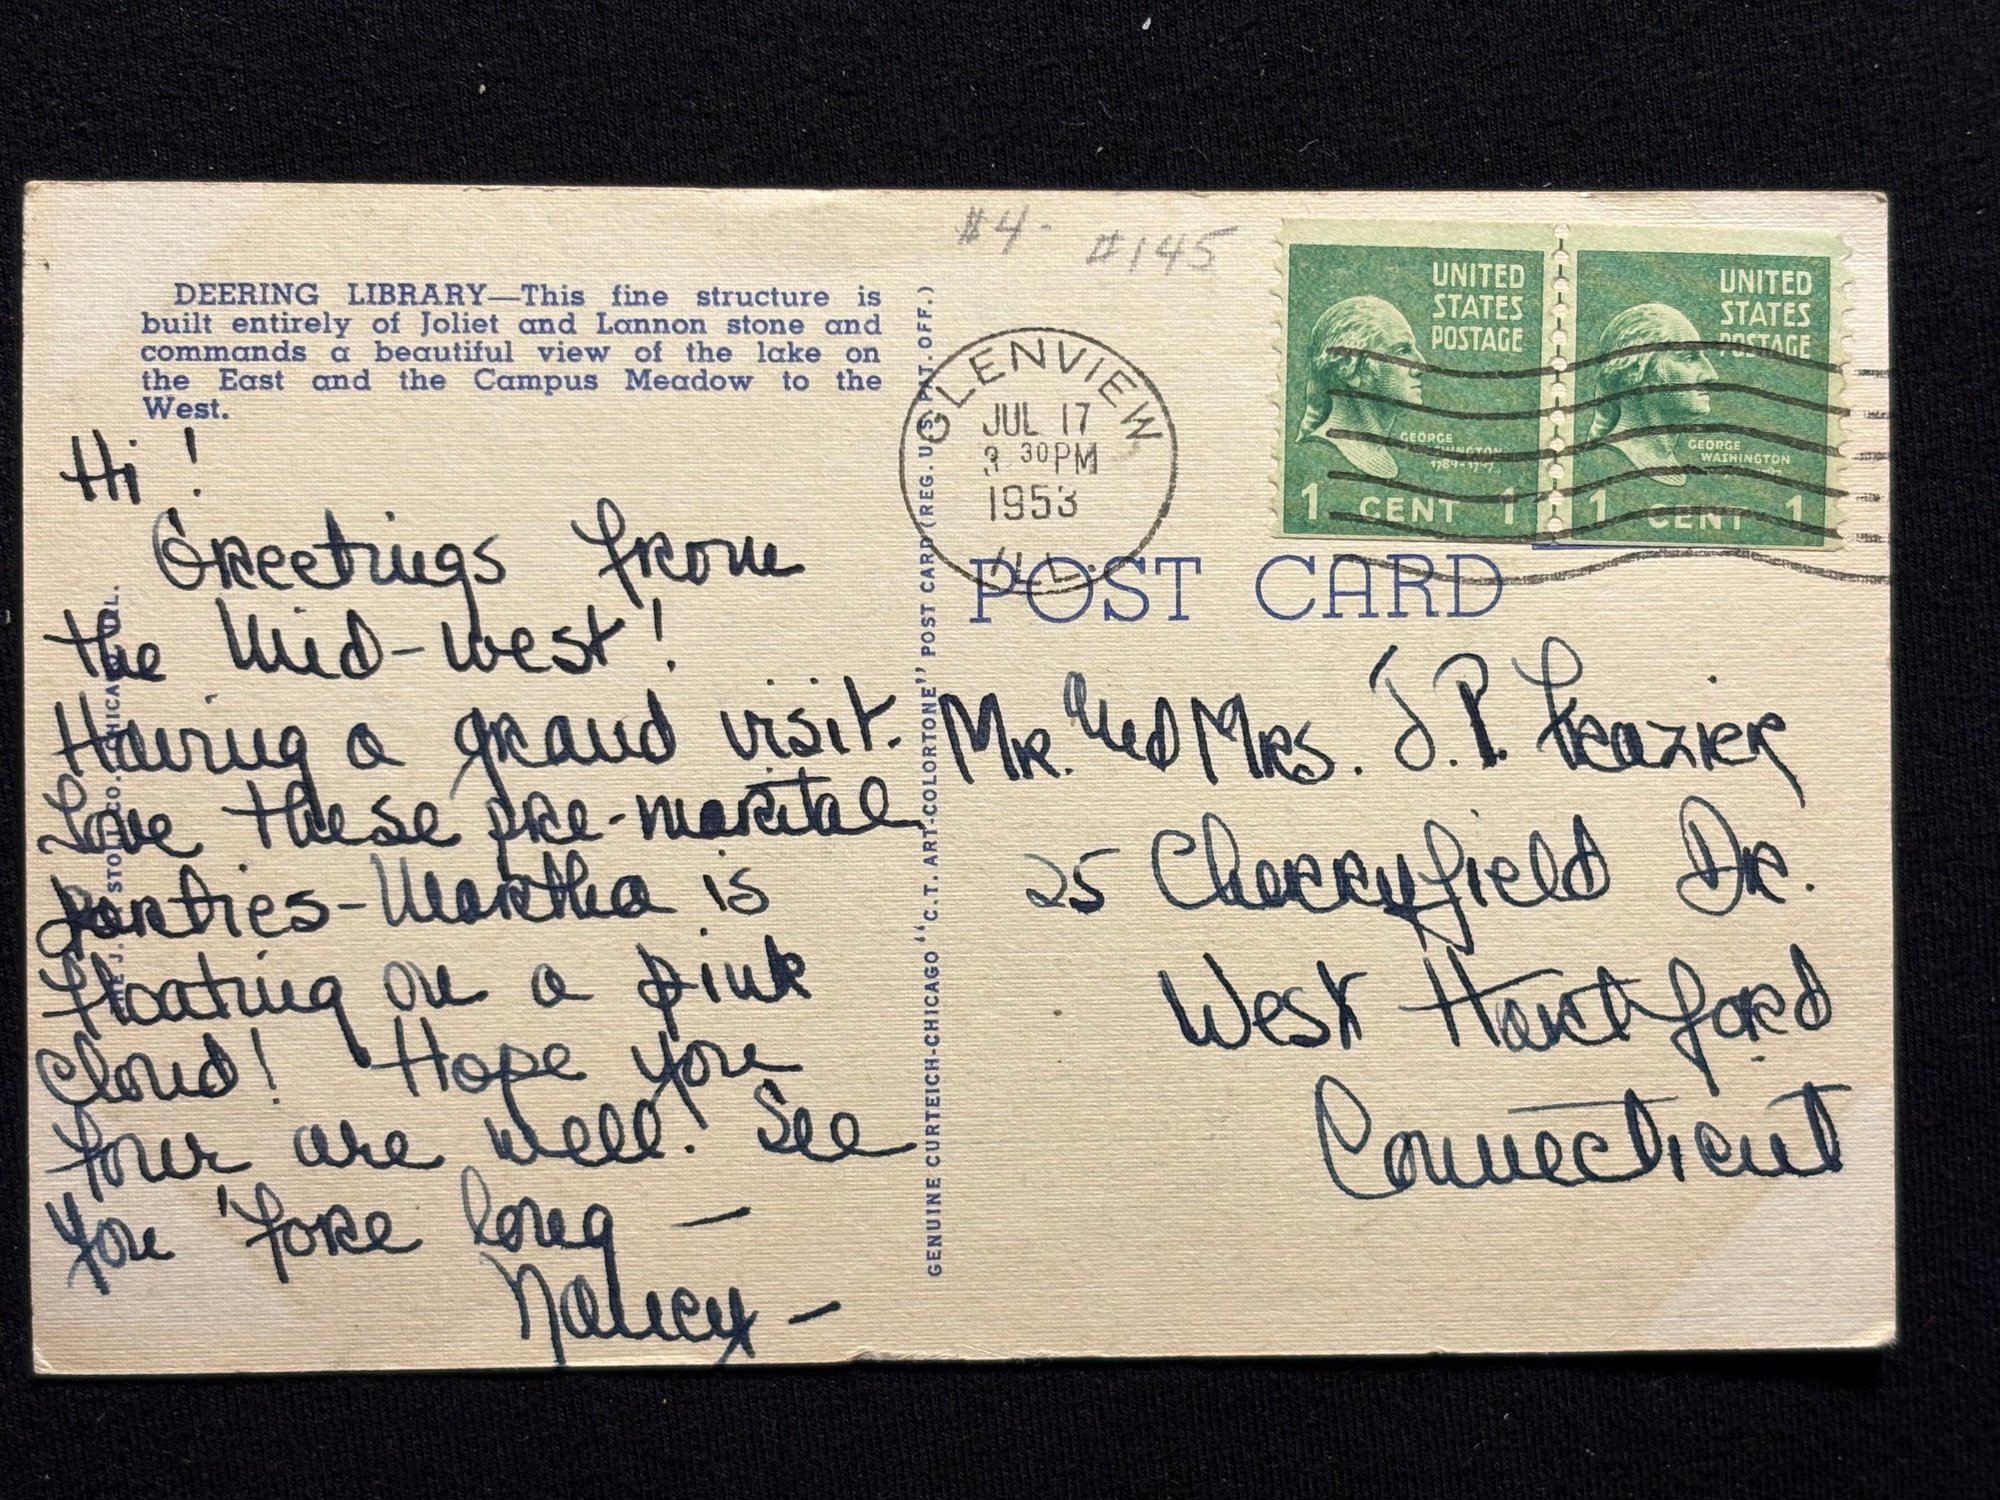 #4- #145
DEERING LIBRARY—This fine structure is
built entirely of Joliet and Lannon stone and
commands a beautiful view of the lake on
the East and the Campus Meadow to the
West.
Hi!
Greetings from
the Mid-west!
Having a grand visit.
Love these pre-marital
parties-Martha is
floating on a pink
cloud! Hope you
four are well! See
you 'fore long —
Nancy —
THE J. STOLL CO. CHICAGO
GENUINE CURTEICH-CHICAGO "C.T. ART-COLORTONE" POST CARD (REG. U.S. PAT. OFF.)
GLENVIEW
JUL 17
3 30PM
1953
ILL.
UNITED
STATES
POSTAGE
GEORGE
WASHINGTON
1789-1797
1 CENT 1
UNITED
STATES
POSTAGE
GEORGE
WASHINGTON
1 CENT 1
POST CARD
Mr. and Mrs. J.P. Frazier
25 Cherryfield Dr.
West Hartford
Connecticut